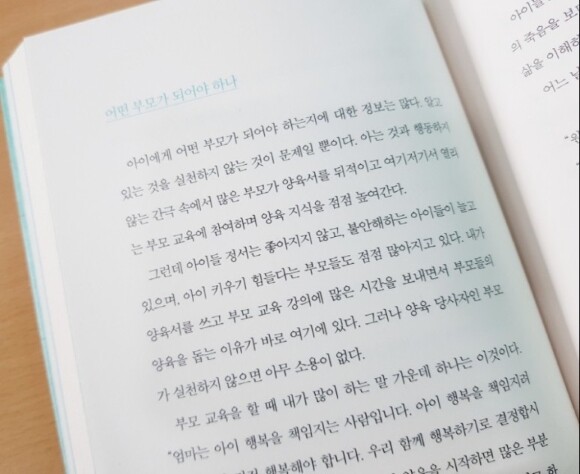 어떤 부모가 되어야 하나
아이에게 어떤 부모가 되어야 하는지에 대한 정보는 많다. 알고
있는 것을 실천하지 않는 것이 문제일 뿐이다. 아는 것과 행동하지
않는 간극 속에서 많은 부모가 양육서를 뒤적이고 여기저기서 열리
는 부모 교육에 참여하며 양육 지식을 점점 높여간다.
그런데 아이들 정서는 좋아지지 않고, 불안해하는 아이들이 늘고
있으며, 아이 키우기 힘들다는 부모들도 점점 많아지고 있다. 내가
양육서를 쓰고 부모 교육 강의에 많은 시간을 보내면서 부모들의
양육을 돕는 이유가 바로 여기에 있다. 그러나 양육 당사자인 부모
가 실천하지 않으면 아무 소용이 없다.
부모 교육을 할 때 내가 많이 하는 말 가운데 하나는 이것이다.
“엄마는 아이 행복을 책임지는 사람입니다. 아이 행복을 책임지려
행복해야 합니다. 우리 함께 행복하기로 결정합시
양육을 시작하면 많은 부분
아이들
의 죽음을 보
삶을 이해하
어느 날